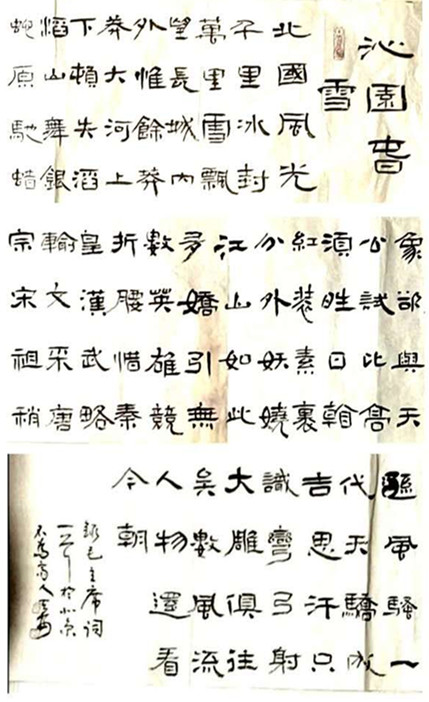 沁園春
雪
北國風光
千里冰封
萬里雪飄
望長城内
外惟餘莽
莽大河上
下頓失滔
滔山舞銀
蛇原馳蜡
象欲與天
公試比高
須晴日看
紅裝素裹
分外妖嬈
江山如此
多嬌引無
數英雄競
折腰惜秦
皇漢武略
輸文采唐
宗宋祖稍
遜風騷一
代天驕成
吉思汗只
識彎弓射
大雕俱往
矣數風流
人物還看
今朝
錄毛主席詞
於北京